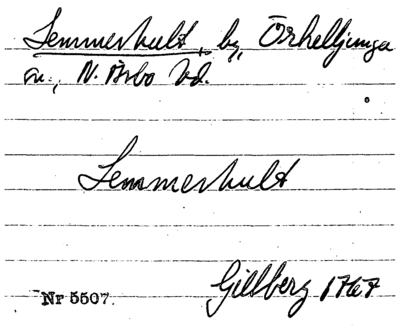 Lemmeshult, by, Örkelljunga
sn., N. Åsbo hd.
Lemmeshult
Gillberg 1767
Nr 5507.